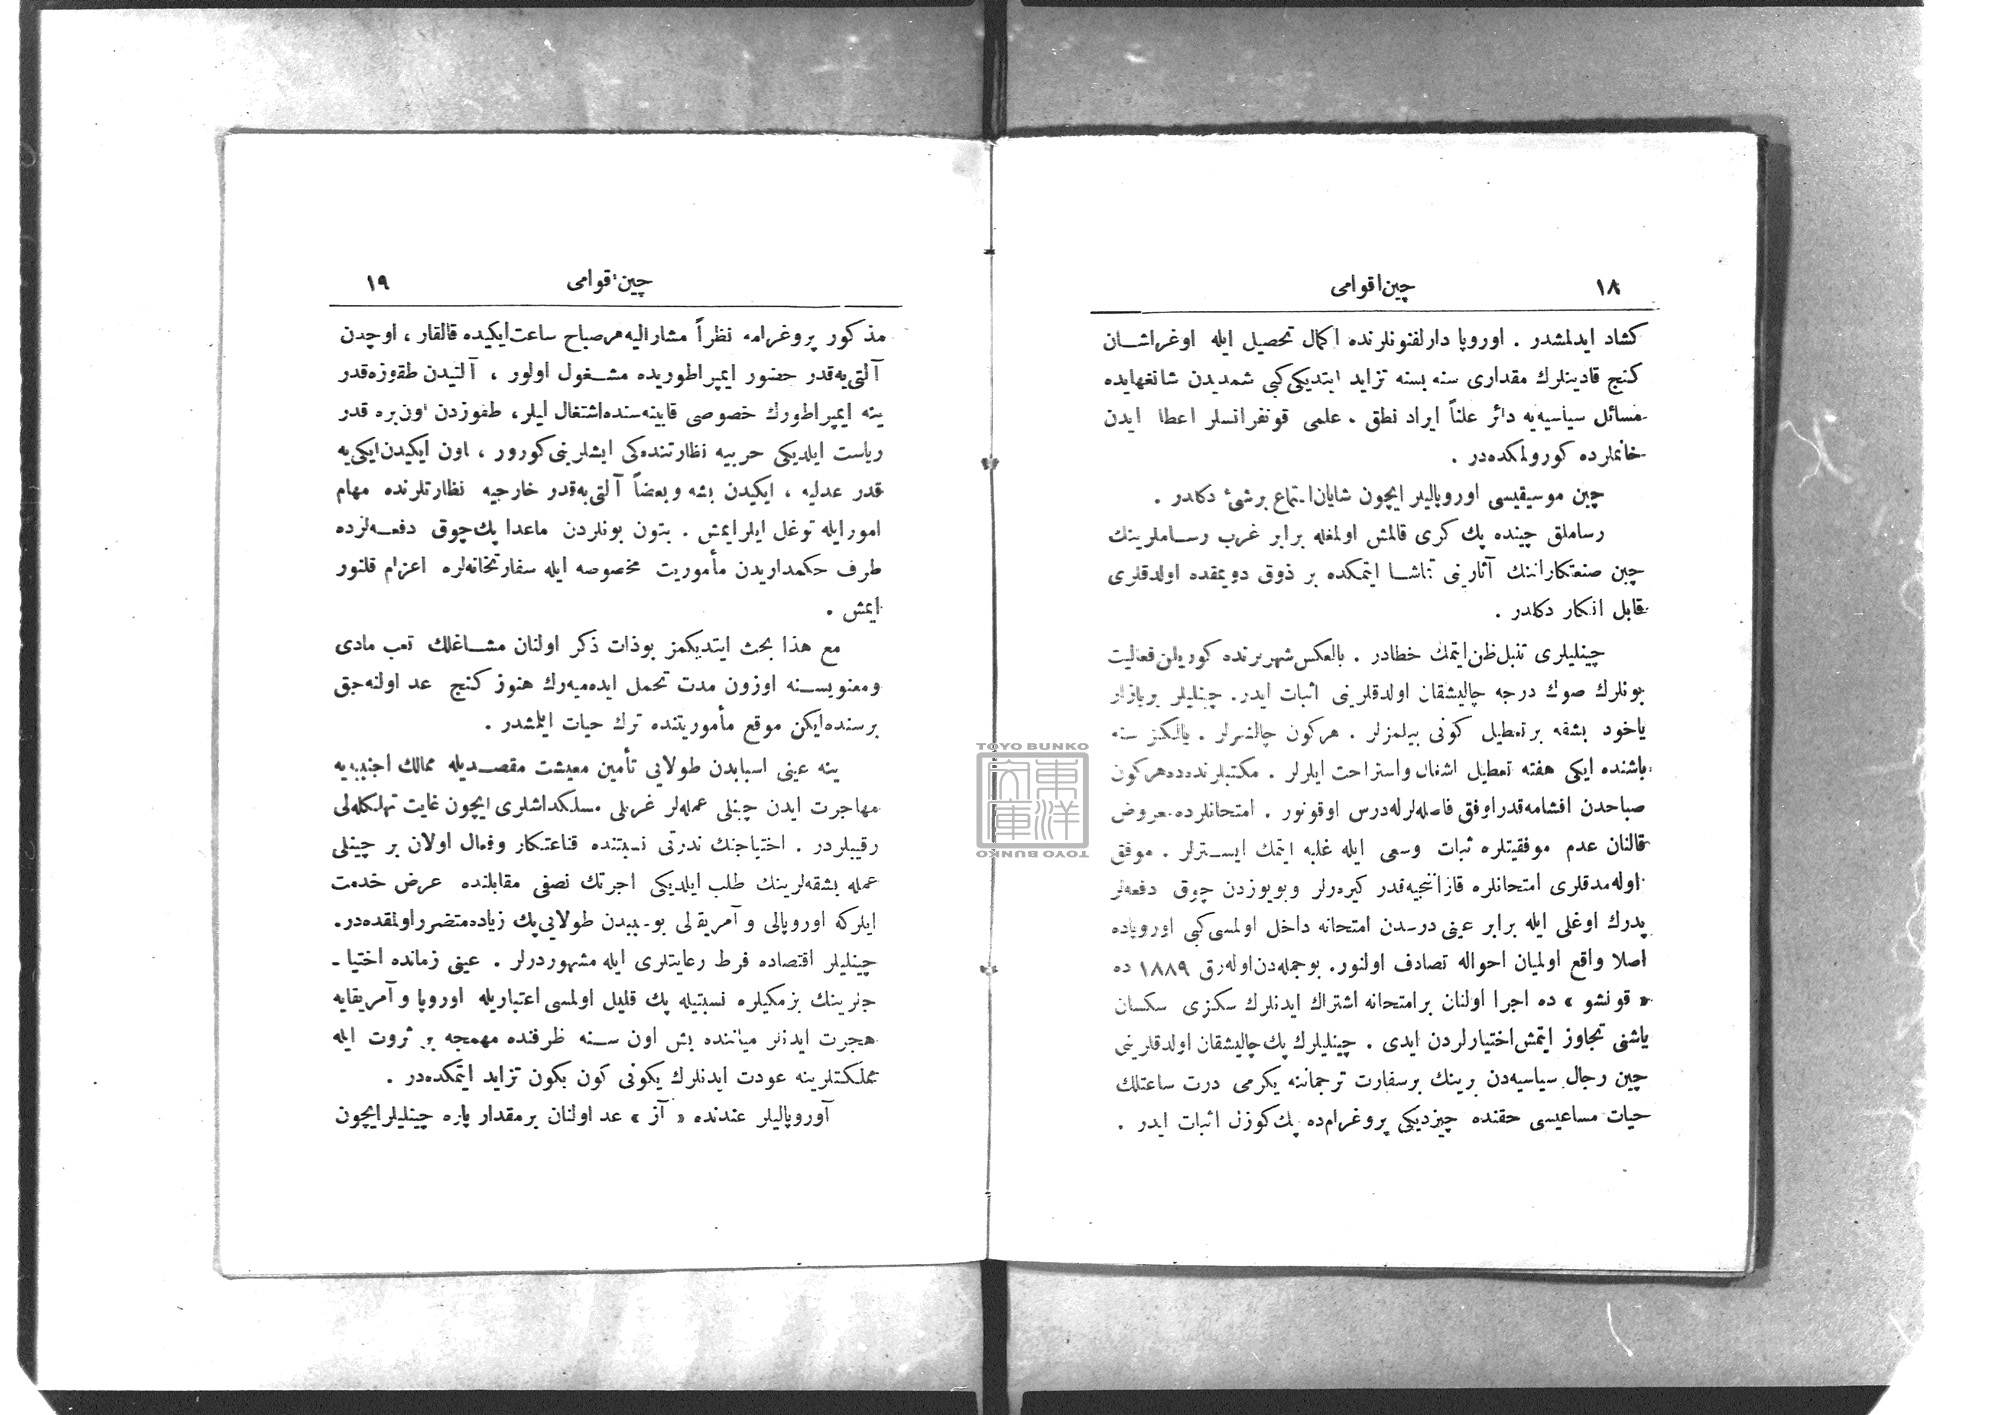 ١٨
چین اقوامی
کشاد ایدلمشدر . اوروپا دارلفنونلرنده اکمال تحصیل ایله اوغراشان
کنج قادینلرك مقداری سنه بسنه تزاید ایتدیکی کبی شمدیدن شانغهایده
مسائل سیاسیه‌یه دائر علناً ایراد نطق . علمی قونفرانسلر اعطا ایدن
خانملرده کورولمکده‌در .
چین موسیقیسی اوروپالیلر ایچون شایان استماع برشیٔ دکلدر .
رساملق چینده پك کری قالمش اولمغله برابر غرب رساملرینك
چین صنعتکارانك آثارینی تماشا ایتمکده بر ذوق دویمقده اولدقلری
قابل انکار دکلدر .
چینلیلری تنبل ظن ایتمك خطادر . بالعکس شهرلرنده کوریلن فعالیت
بونلرك صوك درجه چالیشقان اولدقلرینی اثبات ایدر. چینلیلر بربازار
یاخود بشقه بر تعطیل کونی بیلمزلر . هرکون چالشیرلر . یالکز سنه
باشنده ایکی هفته تعطیل اشغال واستراحت ایلرلر . مکتبلرنده ده هرکون
صباحدن اقشامه قدر اوفق فاصله‌لرله درس اوقونور . امتحانلرده معروض
قالنان عدم موفقیتلره ثبات وسعی ایله غلبه ایتمك ایسترلر . موفق
اوله‌مدقلری امتحانلره قازاننجیه قدر کیررلر وبویوزدن چوق دفعه‌لر
پدرك اوغلی ایله برابر عینی درسدن امتحانه داخل اولمسی کبی اوروپاده
اصلا واقع اولمیان احواله تصادف اولنور. بوجمله‌دن اوله‌رق ١٨٨٩ ده
« قونشو » ده اجرا اولنان برامتحانه اشتراك ایدنلرك سکزی سکسان
یاشنی تجاوز ایتمش اختیارلردن ایدی . چینلیلرك پك چالیشقان اولدقلرینی
چین رجال سیاسیه‌دن برینك برسفارت ترجماننه یکرمی درت ساعتلك
حیات مساعیسی حقنده چیزدیکی پروغرام‌ده پك کوزل اثبات ایدر .
چین اقوامی
١٩
مذکور پروغرامه نظراً مشارالیه هرصباح ساعت ایکیده قالقار ، اوچدن
آلتی‌یه قدر حضور ایمپراطوریده مشغول اولور ، آلتیدن طقوزه قدر
ینه ایمپراطورك خصوصی قابینه‌سنده اشتغال ایلر، طقوزدن اون بره قدر
ریاست ایلدیکی حربیه نظارتنده‌کی ایشلرینی کورور ، اون ایکیدن ایکی‌یه
قدر عدلیه ، ایکیدن بشه وبعضاً آلتی‌یه قدر خارجیه نظارتلرنده مهام
امورایله توغل ایلرایمش . بتون بونلردن ماعدا پك چوق دفعه‌لرده
طرف حکمداریدن مأموریت مخصوصه ایله سفارتخانه‌لره اعزام قلنور
ایمش .
مع هذا بحث ایتدیکمز بوذات ذکر اولنان مشاغلك تعب مادی
ومعنویسنه اوزون مدت تحمل ایده‌میه‌رك هنوز کنج عد اولنه‌جق
برسنده ایکن موقع مأموریتنده ترك حیات ایلمشدر .
ینه عینی اسبابدن طولایی تأمین معیشت مقصدیله ممالك اجنبیه‌یه
مهاجرت ایدن چینلی عمله‌لر غربلی مسلکداشلری ایچون غایت تهلکه‌لی
رقیبلردر . احتیاجنك ندرتی نسبتنده قناعتکار وفعال اولان بر چینلی
عمله بشقه‌لرینك طلب ایلدیکی اجرتك نصفی مقابلنده عرض خدمت
ایلرکه اوروپالی و آمریقه‌لی بوسببدن طولایی پك زیاده متضرر اولمقده‌در.
چینلیلر اقتصاده فرط رعایتلری ایله مشهوردرلر . عینی زمانده احتیا‌ـ
جلرینك بزمکیلره نسبتیله پك قلیل اولمسی اعتباریله اوروپا و آمریقایه
هجرت ایدنلر میاننده بش اون سنه ظرفنده مهمجه بر ثروت ایله
مملکتلرینه عودت ایدنلرك یکونی کون بکون تزاید ایتمکده‌در .
آوروپالیلر عندنده « آز » عد اولنان برمقدار پاره چینلیلر ایچون
TOYO BUNKO
東洋文庫
TOYO BUNKO